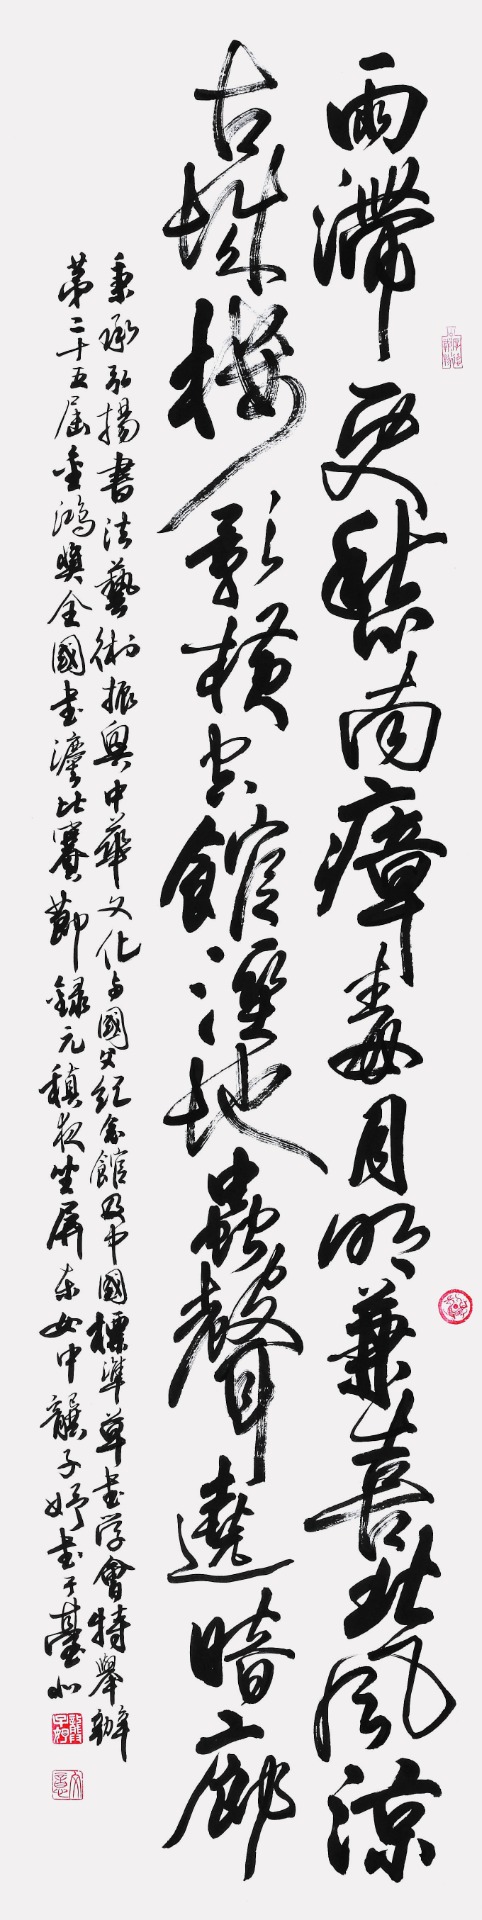 雨滯更愁南瘴毒月明兼喜北風涼
古城樓影橫空館溼地蟲聲遶暗廊
秉承弘揚書法藝術振興中華文化与國父紀念館及中國標準草書學會特舉辦
第二十五屆金鴻獎全國書灋比賽節錄元稹夜坐屏東女中龔子妤書于臺北